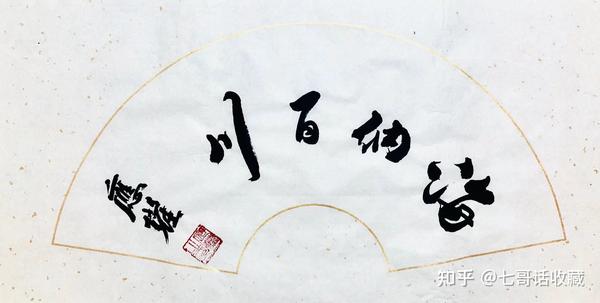 海纳百川
知乎 @七哥话收藏